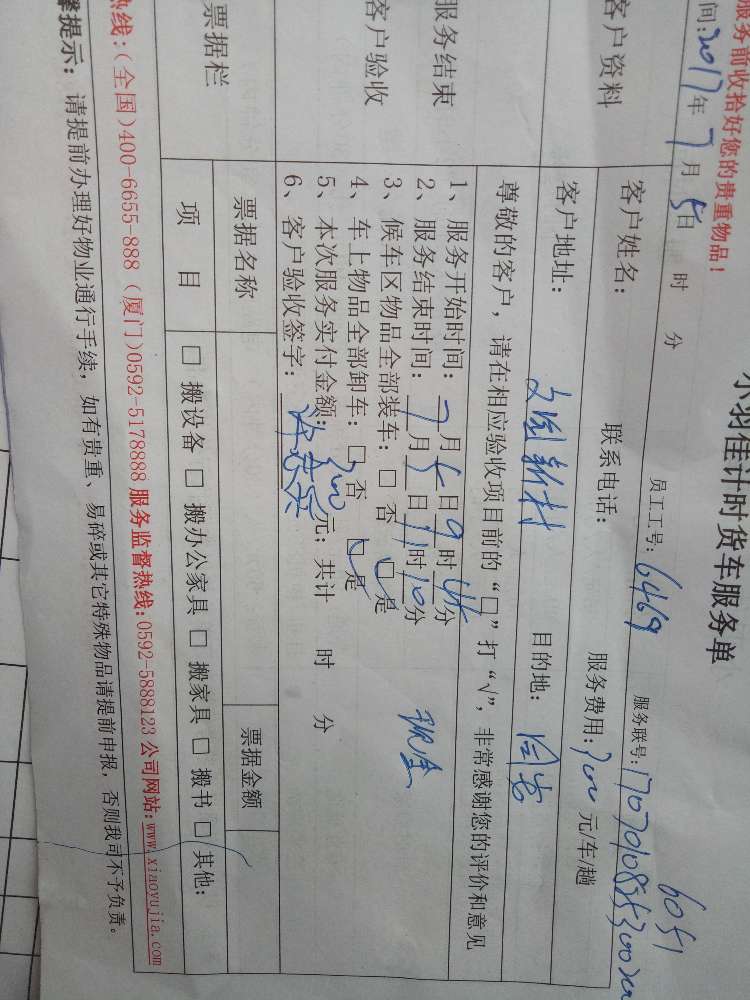 小羽佳计时货车服务单
服务前收拾好您的贵重物品！
间:2017年7月5日 时 分 员工工号: 6469 服务联号:
6051
客户资料
客户姓名: 联系电话: 服务费用: 700 元/车/趟
客户地址: 文园新村 目的地: 同安
服务结束
客户验收
尊敬的客户，请在相应验收项目前的“□”打“√”，非常感谢您的评价和意见
1、服务开始时间: 7月5日9时 分
2、服务结束时间: 7月5日11时10分
3、候车区物品全部装车: □ 否 □是
4、车上物品全部卸车: □ 否 □是
5、本次服务实付金额: 700元; 共计 时 分
6、客户验收签字:
现金
票据栏
票据名称 票据金额
项目 □ 搬设备 □ 搬办公家具 □ 搬家具 □ 搬书 □ 其他:
热线:(全国)400-6655-888 (厦门)0592-5178888 服务监督热线:0592-5888123 公司网站:www.xiaoyujia.com
馨提示: 请提前办理好物业通行手续，如有贵重、易碎或其它特殊物品请提前申报，否则我司不予负责。